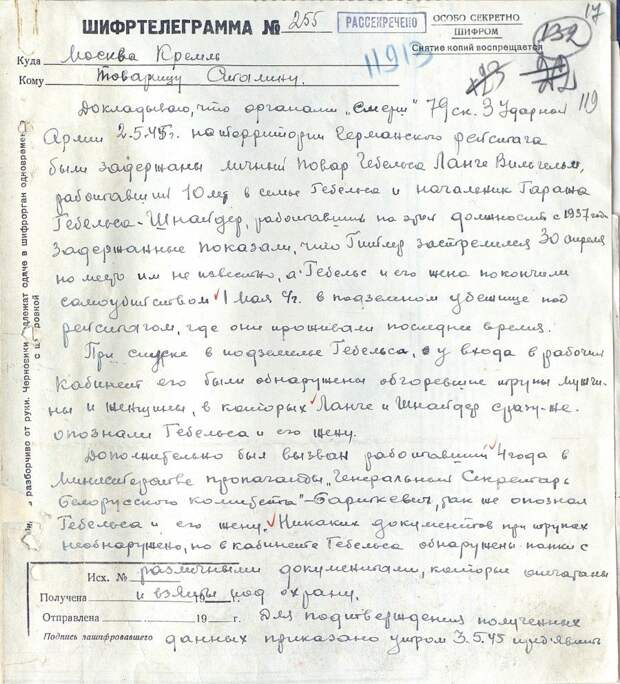 17
ШИФРТЕЛЕГРАММА № 255
РАССЕКРЕЧЕНО
ОСОБО СЕКРЕТНО
ШИФРОМ
Снятие копий воспрещается
132
Куда Москва Кремль
Кому Товарищу Сталину.
11913
123
22
119
Докладываю, что органами „Смерш" 79 ск. 3 Ударной
Армии 2.5.45г. на территории Германского рейхстага
были задержаны личный повар Гебельса Ланге Вильгельм,
работавший 10 лет в семье Гебельса и начальник Гаража
Гебельса - Шнайдер, работавший на этой должности с 1937 года
Задержанные показали, что Гитлер застрелился 30 апреля
но место им не известно, а Гебельс и его жена покончили
самоубийством 1 мая с/г. в подземном убежище под
рейхстагом, где они проживали последнее время.
При спуске в подземелье Гебельса, у входа в рабочий
Кабинет его были обнаружены обгоревшие трупы мужчи-
ны и женщины, в которых Ланге и Шнайдер сразу-же
опознали Гебельса и его жену.
Дополнительно был вызван работавший 4 года в
Министерстве пропаганды „Генеральный Секретарь
Белорусского комитета" - так же опознал
Гебельса и его жену. Никаких документов при трупах
необнаружено, но в кабинете Гебельса обнаружены папки с
различными документами, которые опечатаны
и взяты под охрану.
Для подтверждения полученных
данных приказано утром 3.5.45 предъявить
Исх. №
Получена 19 г.
Отправлена 19 г.
Подпись зашифровавшего
разборчиво от руки. Черновики
лежат сдаче в шифрорган одноврем